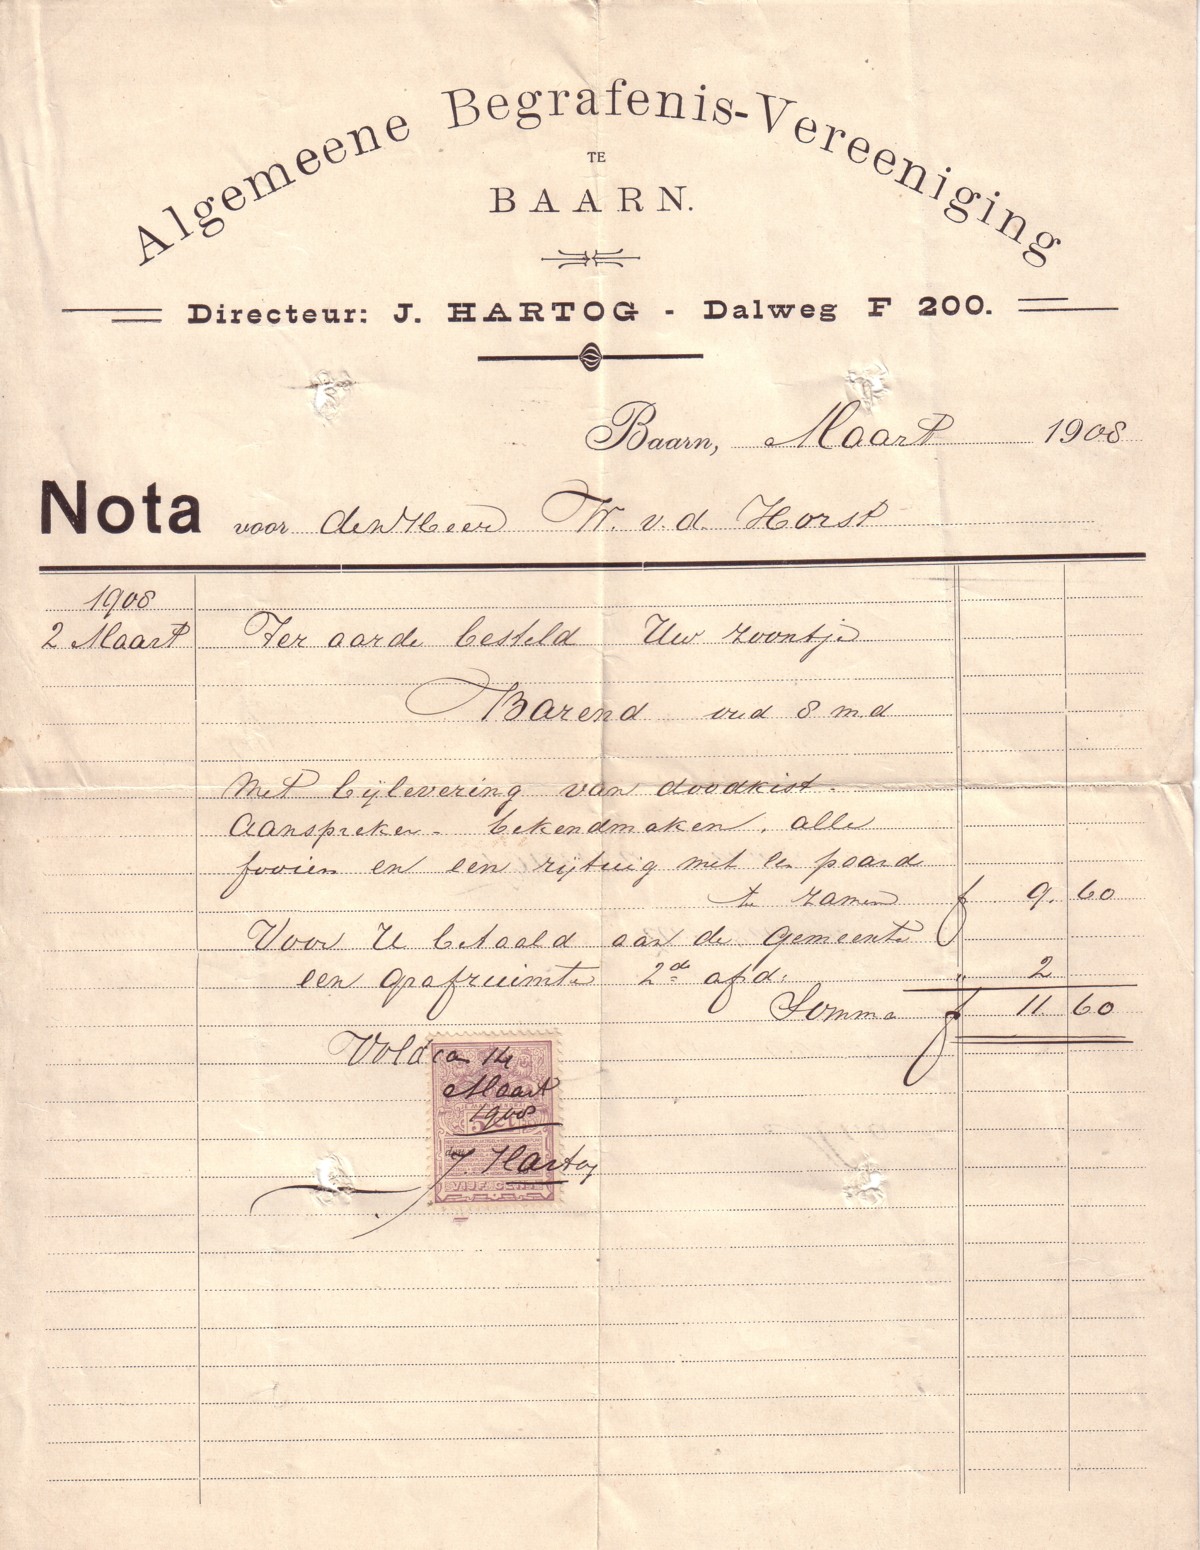 Algemeene Begrafenis-Vereeniging
TE
BAARN.
Directeur: J. HARTOG - Dalweg F 200.
Baarn, Maart 1908
Nota voor den Heer W. v. d. Horst
1908
2 Maart Ter aarde besteld Uw zoontje
Barend oud 8 md
Met bijlevering van doodkist.
Aanspreker - bekendmaken, alle
fooien en een rijtuig met een paard
te zamen f 9.60
Voor U betaald aan de gemeente
een grafruimte 2de afd: " 2
Somma f 11 60
Voldaan 14
Maart
1908
J. Hartog
VIJF CENT